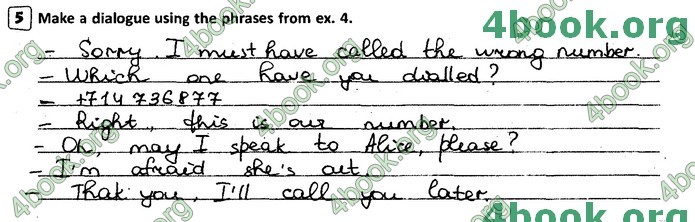 5 Make a dialogue using the phrases from ex. 4.
- Sorry. I must have called the wrong number.
- Which one have you dialled?
- +714736877
- Right, this is our number.
- Oh, may I speak to Alice, please?
- I'm afraid she's out.
- Thak you, I'll call you later.
4book.org